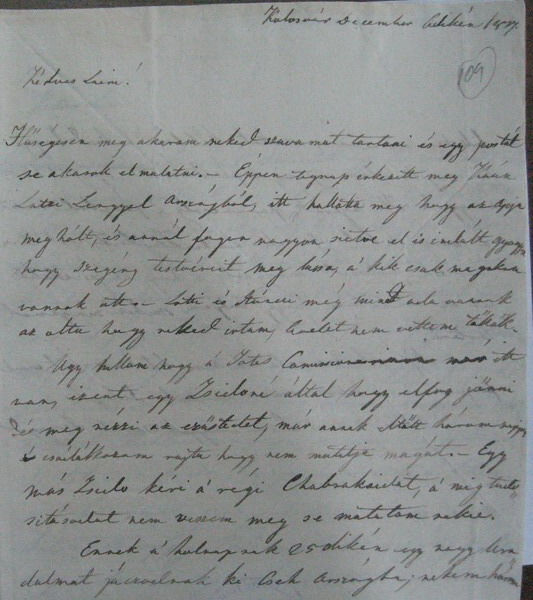 Kolosvár December 6dikán
109
Kedves Laim!
Hűségesen meg akarom neked szavamat tartani és egy postát
se akarok el mulatni. – Éppen tegnap érkezett meg
Latzi Lengyel Országból, itt hallotta meg hogy az apja
meg hólt, és annál fogva nagyon sietve el is indúlt
hogy szegény testvéreit meg lássa, á kik csak magokra
vannak ott – Lóti és még mind oda vannak
az olta hogy neked irtam, levelet nem vettem tőllök.
Ugy hallom hogy á már itt
van, izent egy Zsidoné által hogy elfog jönni
és meg nézzi az ezüstedet, már annak előtt három napja
és csudálkozom rajta hogy nem mutatja magát. – Egy
más Zsido kéri á régi Chabrakaidat, á míg tudo-
sitásodat nem veszem meg se mutatom nekie.
Ennek á holnapnak 25dikén egy nagy
dalmat játzodnak ki Cseh Országba; nekem